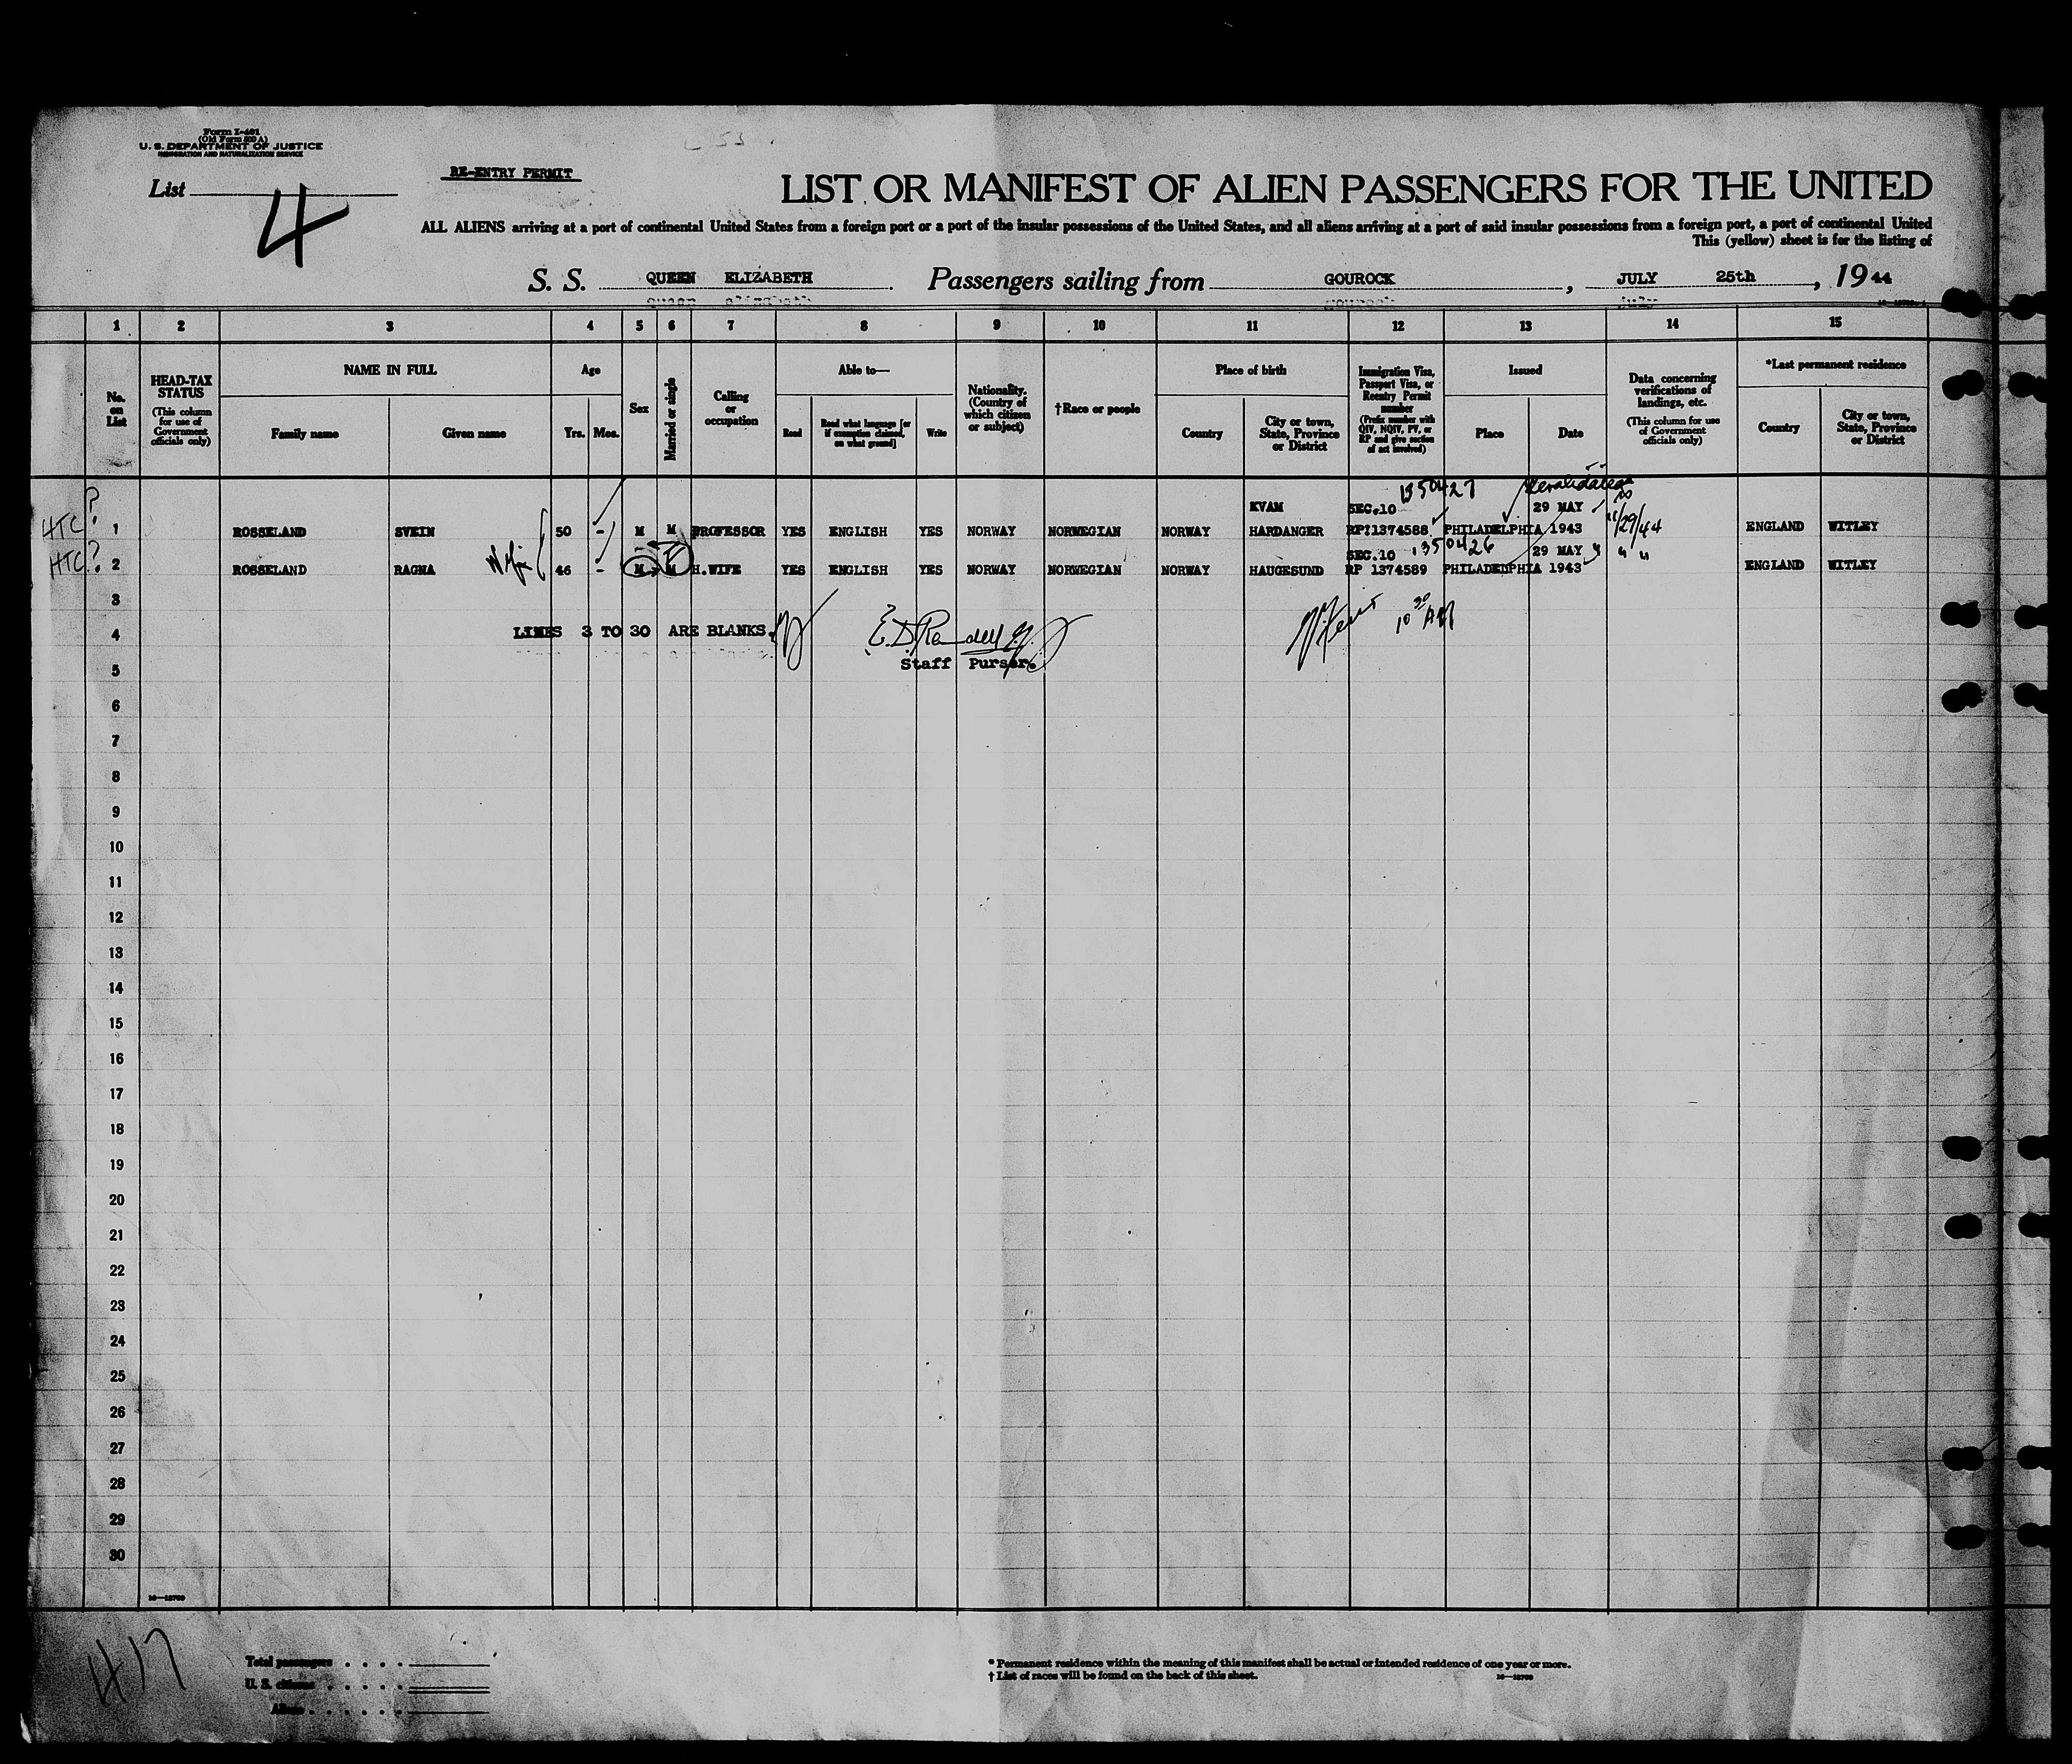 Form I-401
(Old Form 500 A)
U. S. DEPARTMENT OF JUSTICE
IMMIGRATION AND NATURALIZATION SERVICE
List 4
RE-ENTRY PERMIT
LIST OR MANIFEST OF ALIEN PASSENGERS FOR THE UNITED
ALL ALIENS arriving at a port of continental United States from a foreign port or a port of the insular possessions of the United States, and all aliens arriving at a port of said insular possessions from a foreign port, a port of continental United
This (yellow) sheet is for the listing of
S. S. QUEEN ELIZABETH Passengers sailing from GOUROCK, JULY 25th, 1944
1 2 3 4 5 6 7 8 9 10 11 12 13 14 15
No. on List
HEAD-TAX STATUS (This column for use of Government officials only)
NAME IN FULL
Family name Given name
Age
Yrs. Mos.
Sex
Married or single
Calling or occupation
Able to—
Read Read what language [or if exemption claimed, on what ground] Write
Nationality. (Country of which citizen or subject)
†Race or people
Place of birth
Country City or town, State, Province or District
Immigration Visa, Passport Visa, or Reentry Permit number (Prefix number with QIV, NQIV, PV, or RP and give section of act involved)
Issued
Place Date
Data concerning verifications of landings, etc. (This column for use of Government officials only)
*Last permanent residence
Country City or town, State, Province or District
1350427 Revalidated
KVAM SEC.10 29 MAY
HTC ? 1 ROSSELAND SVEIN 50 - M M PROFESSOR YES ENGLISH YES NORWAY NORWEGIAN NORWAY HARDANGER RP?1374588 PHILADELPHIA 1943 11/29/44 ENGLAND WITLEY
SEC.10 1350426 29 MAY " "
HTC ? 2 ROSSELAND RAGNA Wife 46 - M M H.WIFE YES ENGLISH YES NORWAY NORWEGIAN NORWAY HAUGESUND RP 1374589 PHILADELPHIA 1943 ENGLAND WITLEY
3
10 30 AM
4 LINES 3 TO 30 ARE BLANKS.
5 Staff Purser.
6
7
8
9
10
11
12
13
14
15
16
17
18
19
20
21
22
23
24
25
26
27
28
29
30
16—18700
417
Total passengers . . . .
U. S. citizens . . . . .
Aliens . . . . . .
* Permanent residence within the meaning of this manifest shall be actual or intended residence of one year or more.
† List of races will be found on the back of this sheet. 16—18700